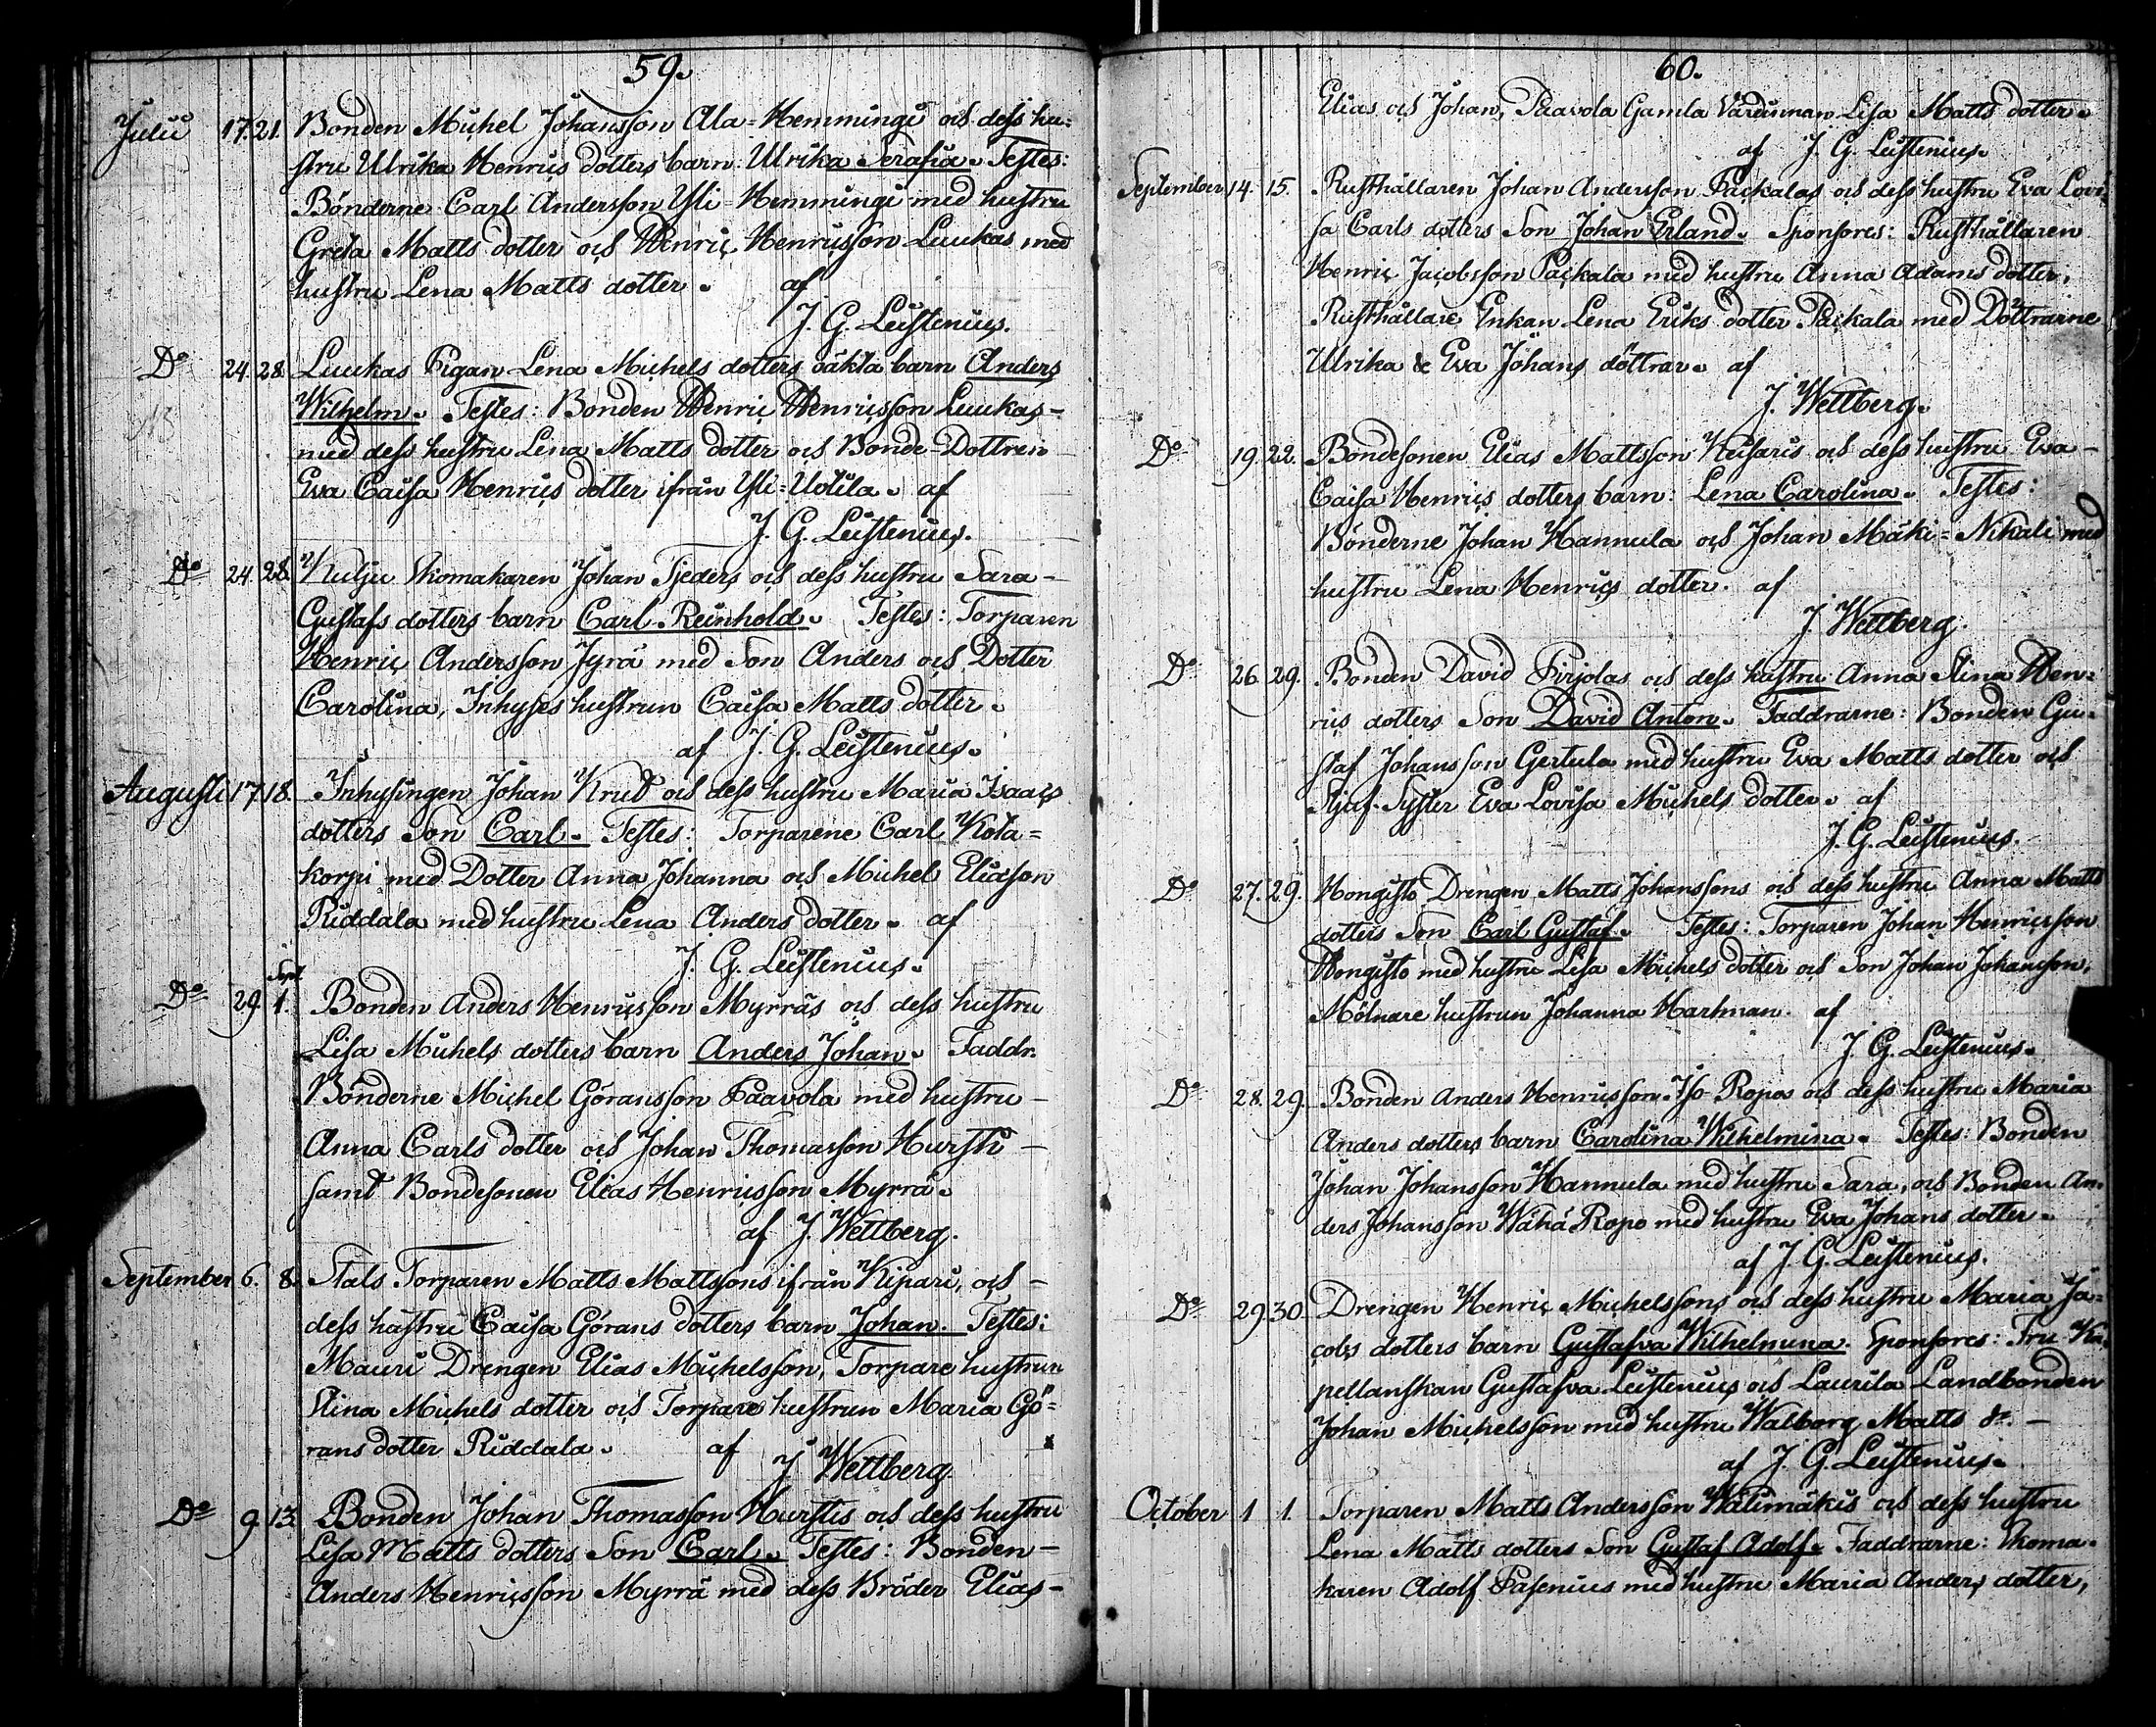 59.
Julii 17. 21. Bonden Michel Johansson Ala-Hemmingi och dess hu-
stru Ulrika Henrics dotters barn: Ulrika Serafia. Testes:
Bönderne Carl Andersson Yli-Hemmingi med hustru
Greta Matts dotter och Henric Henricsson Luukas med
hustru Lena Matts dotter. af
J. G. Leistenius.
Do 24. 28. Luukas Pigan Lena Michels dotters oäkta barn Anders
Wilhelm. Testes: Bonden Henric Henricsson Luukas-
med dess hustru Lena Matts dotter och Bonde-Dottren
Eva Caisa Henrics dotter ifrån Yli-Uotila. af
J. G. Leistenius.
Do 24. 28. Kulju Skomakaren Johan Tjeders och dess hustru Sara-
Gustafs dotters barn Carl Reinhold. Testes: Torparen
Henric Andersson Jyrä med Son Anders och Dotter
Carolina, Inhyses hustrun Caisa Matts dotter.
af J. G. Leistenius.
Augusti 17 18. Inhysingen Johan Krut och dess hustru Maria Isaacs
dotters Son Carl. Testes: Torparene Carl Kota-
korpi med Dotter Anna Johanna och Michel Eliasson
Riddala med hustru Lena Anders dotter. af
J. G. Leistenius.
Sept.
Do 29 1. Bonden Anders Henricsson Myrräs och dess hustru
Lisa Michels dotters barn Anders Johan. Faddr.
Bönderne Michel Göransson Paavola med hustru-
Anna Carls dotter och Johan Thomasson Hursti-
samt Bondesonen Elias Henricsson Myrrä.
af J. Wettberg.
September 6. 8. Stals Torparen Matts Mattssons ifrån Kipari, och-
dess hustru Caisa Görans dotters barn Johan. Testes:
Mauri Drengen Elias Michelsson, Torpare hustrun
Stina Michels dotter och Torpare hustrun Maria Gö-
rans dotter Riddala. af
J Wettberg.
Do 9 13. Bonden Johan Thomasson Hurstis och dess hustru
Lisa Matts dotters Son Carl. Testes: Bonden-
Anders Henricsson Myrrä med dess Bröder Elias-
60.
Elias och Johan, Paavola Gamla Värdinnan Lisa Matts dotter.
af J. G. Leistenius.
September 14. 15. Rusthållaren Johan Andersson Packalas och dess hustru Eva Lovi-
sa Carls dotters Son Johan Erland. Sponsores: Rusthållaren
Henric Jacobsson Packala med hustru Anna Adams dotter,
Rusthållare Enkan Lena Eriks dotter Packala med Döttrarne
Ulrika & Eva Johans döttrar. af
J. Wettberg.
Do 19. 22. Bondesonen Elias Mattsson Keisaris och dess hustru Eva-
Caisa Henrics dotters barn: Lena Carolina. Testes:
Bönderne Johan Hannula och Johan Mäki-Nikali med
hustru Lena Henrics dotter. af
J. Wettberg.
Do 26 29. Bonden David Pirjolas och dess hustru Anna Stina Hen-
rics dotters Son David Anton. Faddrarne: Bonden Gu-
staf Johansson Gertula med hustru Eva Matts dotter och
Stjuf-Syster Eva Lovisa Michels dotter. af
J. G. Leistenius.
Do 27. 29. Hongisto Drengen Matts Johanssons och dess hustru Anna Matts
dotters Son Carl Gustaf. Testes: Torparen Johan Henricsson
Hongisto med hustru Lisa Michels dotter och Son Johan Johansson,
Mölnare hustrun Johanna Hartman. af
J. G. Leistenius.
Do 28. 29. Bonden Anders Henricsson Iso Ropos och dess hustru Maria
Anders dotters barn Carolina Wilhelmina. Testes: Bonden
Johan Johansson Hannula med hustru Sara, och Bonden An-
ders Johansson Wähä Ropo med hustru Eva Johans dotter.
af J. G. Leistenius.
Do 29. 30 Drengen Henric Michelssons och dess hustru Maria Ja-
cobs dotters barn Gustafva Wilhelmina. Sponsores: Fru Ka-
pellanskan Gustafva Leistenius och Laurila Landbonden
Johan Michelsson med hustru Walborg Matts dr.-
af J. G. Leistenius.
October 1 1. Torparen Matts Andersson Wälimäkis och dess hustru
Lena Matts dotters Son Gustaf Adolf. Faddrarne: Skoma-
karen Adolf Pasenius med hustru Maria Anders dotter,